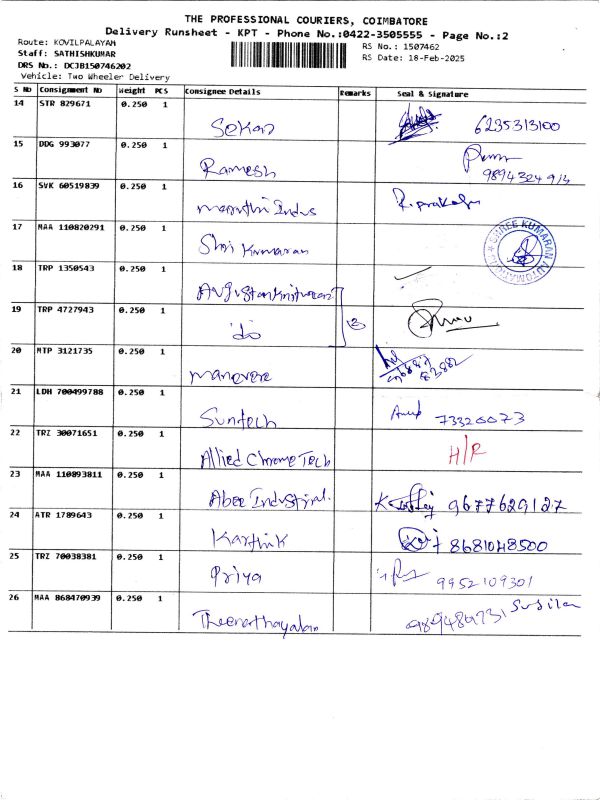 THE PROFESSIONAL COURIERS, COIMBATORE
Delivery Runsheet - KPT - Phone No.:0422-3505555 - Page No.:2
Route: KOVILPALAYAM
Staff: SATHISHKUMAR
DRS No.: DCJB150746202
Vehicle: Two Wheeler Delivery
RS No.: 1507462
RS Date: 18-Feb-2025
S No Consignment No Weight PCS Consignee Details Remarks Seal & Signature
14 STR 829671 0.250 1
Sekar 6235313100
15 DDG 993077 0.250 1
Ramesh
16 SVK 60519839 0.250 1
Maruthi Indus R. prakash
17 MAA 110820291 0.250 1
Shri Kumaran
SHREE KUMARAN AUTOMATIONS
18 TRP 1350543 0.250 1
19 TRP 4727943 0.250 1
do
20 MTP 3121735 0.250 1
21 LDH 700499788 0.250 1
Suntech 73320073
22 TRZ 30071651 0.250 1
Allied Chrome Tech H/R
23 MAA 110893811 0.250 1
Abee Industrial. 9677629127
24 ATR 1789643 0.250 1
Karthik 8681048500
25 TRZ 70038381 0.250 1
Priya 9952109301
26 MAA 868470939 0.250 1
Theenathayalan